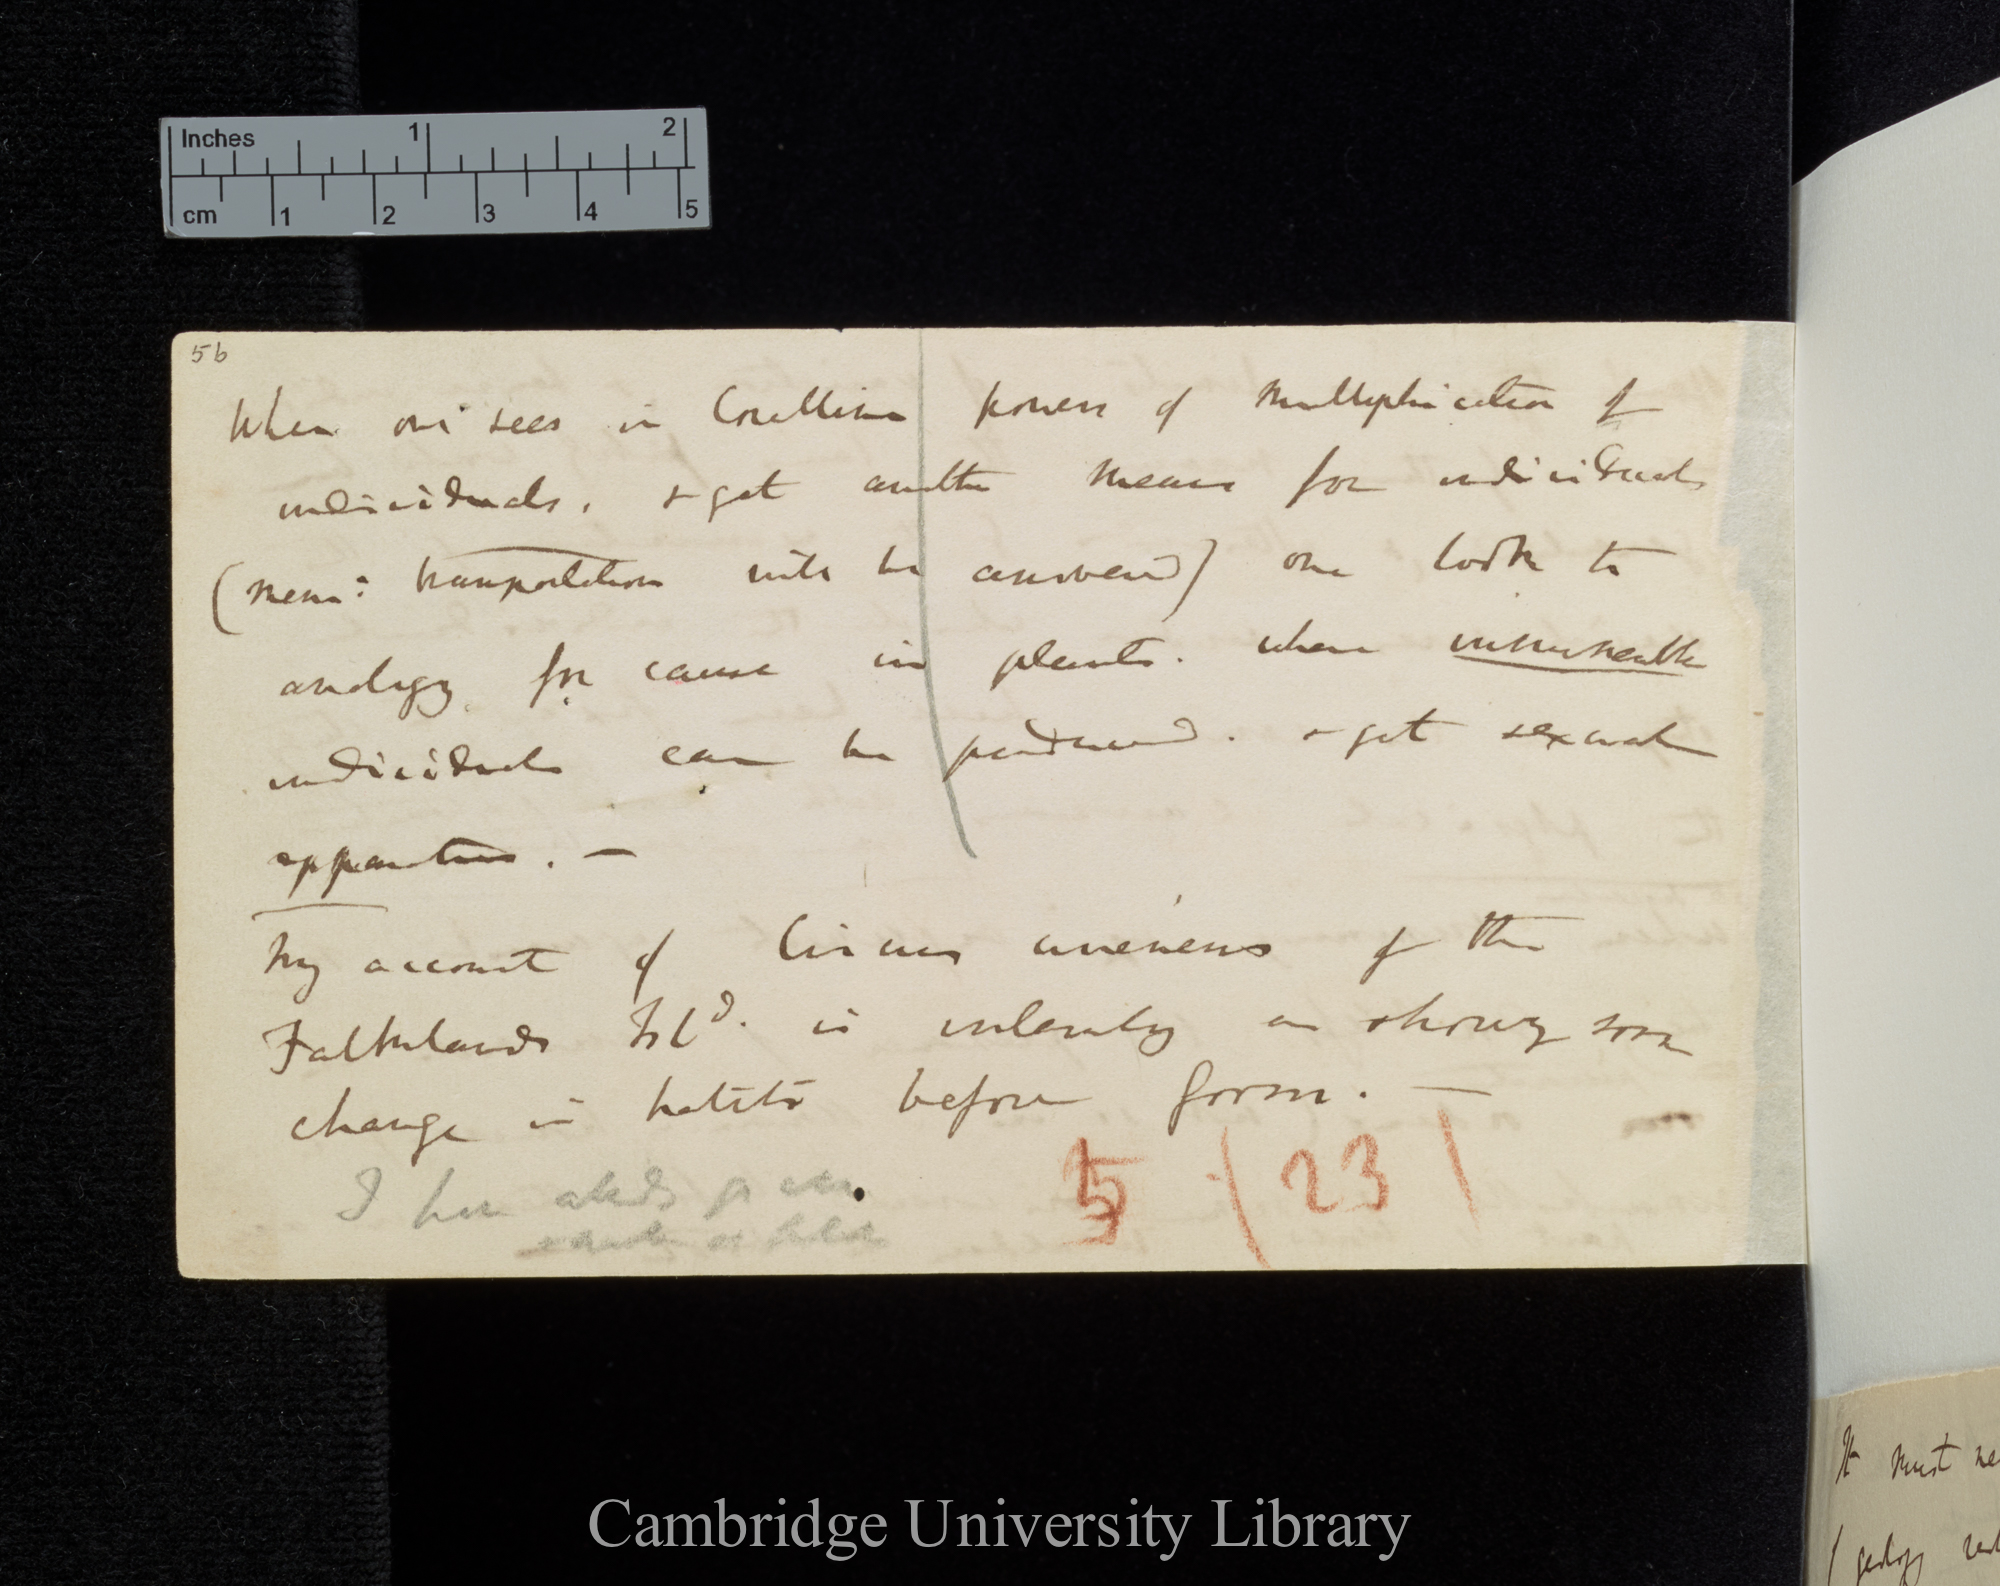 Inches 1 2
cm 1 2 3 4 5
5b
When one sees in Corallina powers of multiplication of
individuals, & yet another means for individuals
(mem: transportation will be answered) one looks to
analogy for cause in plants. where innumerable
individuals can be produced. & yet sexual
apparatus. —
My account of Circus cinereus of the
Falklands Isld. is interesting in showing some
change in habits before form. —
I have already given
5 (23)
Cambridge University Library
It must
(geology